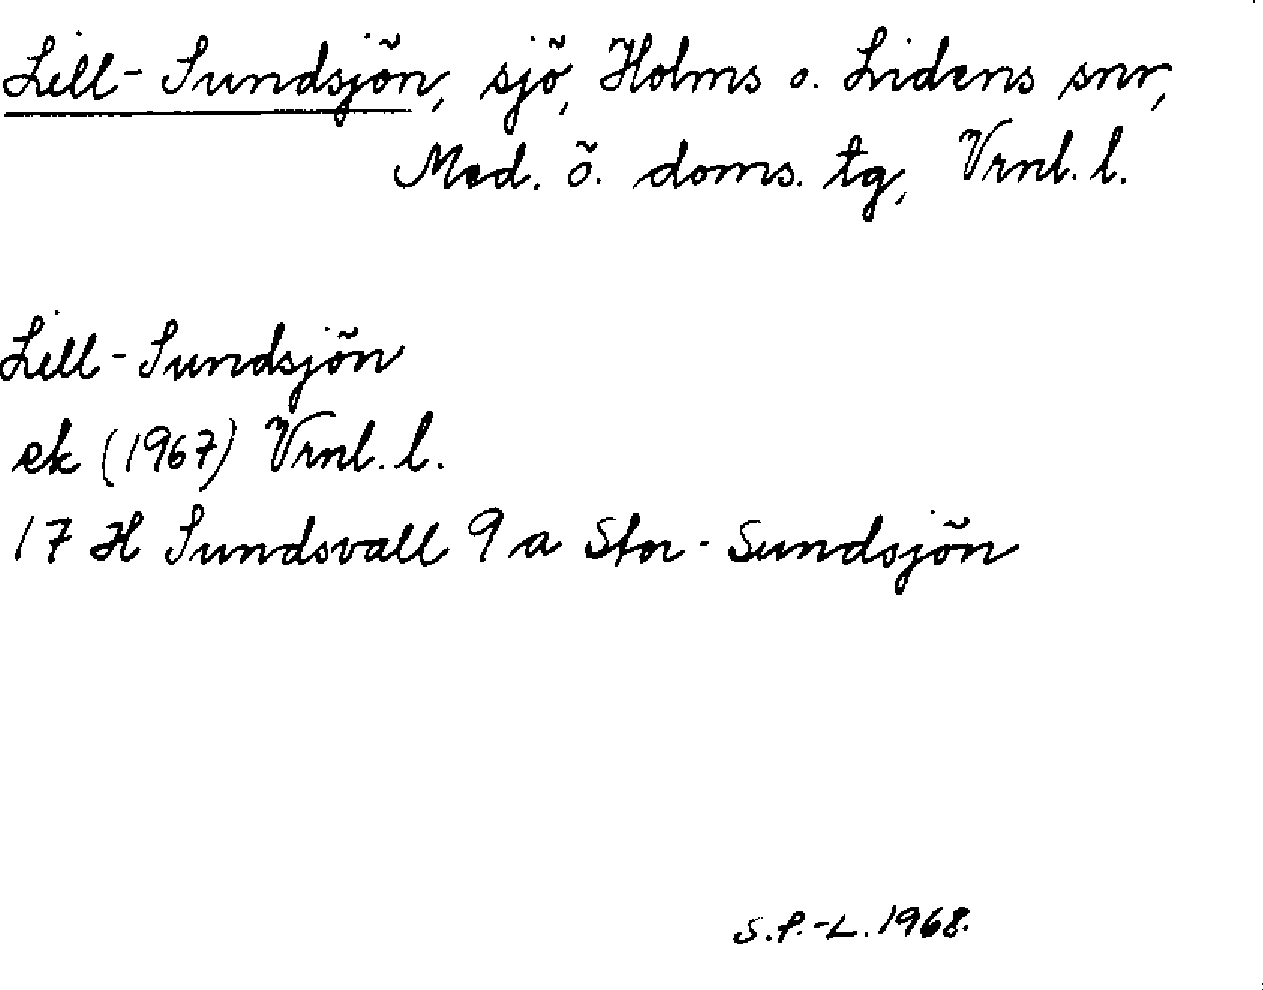 Lill-Sundsjön, sjö, Holms o. Lidens snr,
Med. ö. doms. tg, Vrnl. l.
Lill-Sundsjön
ek (1967) Vrnl. l.
17 H Sundsvall 9 a Stor-Sundsjön
S.P.-L. 1968.